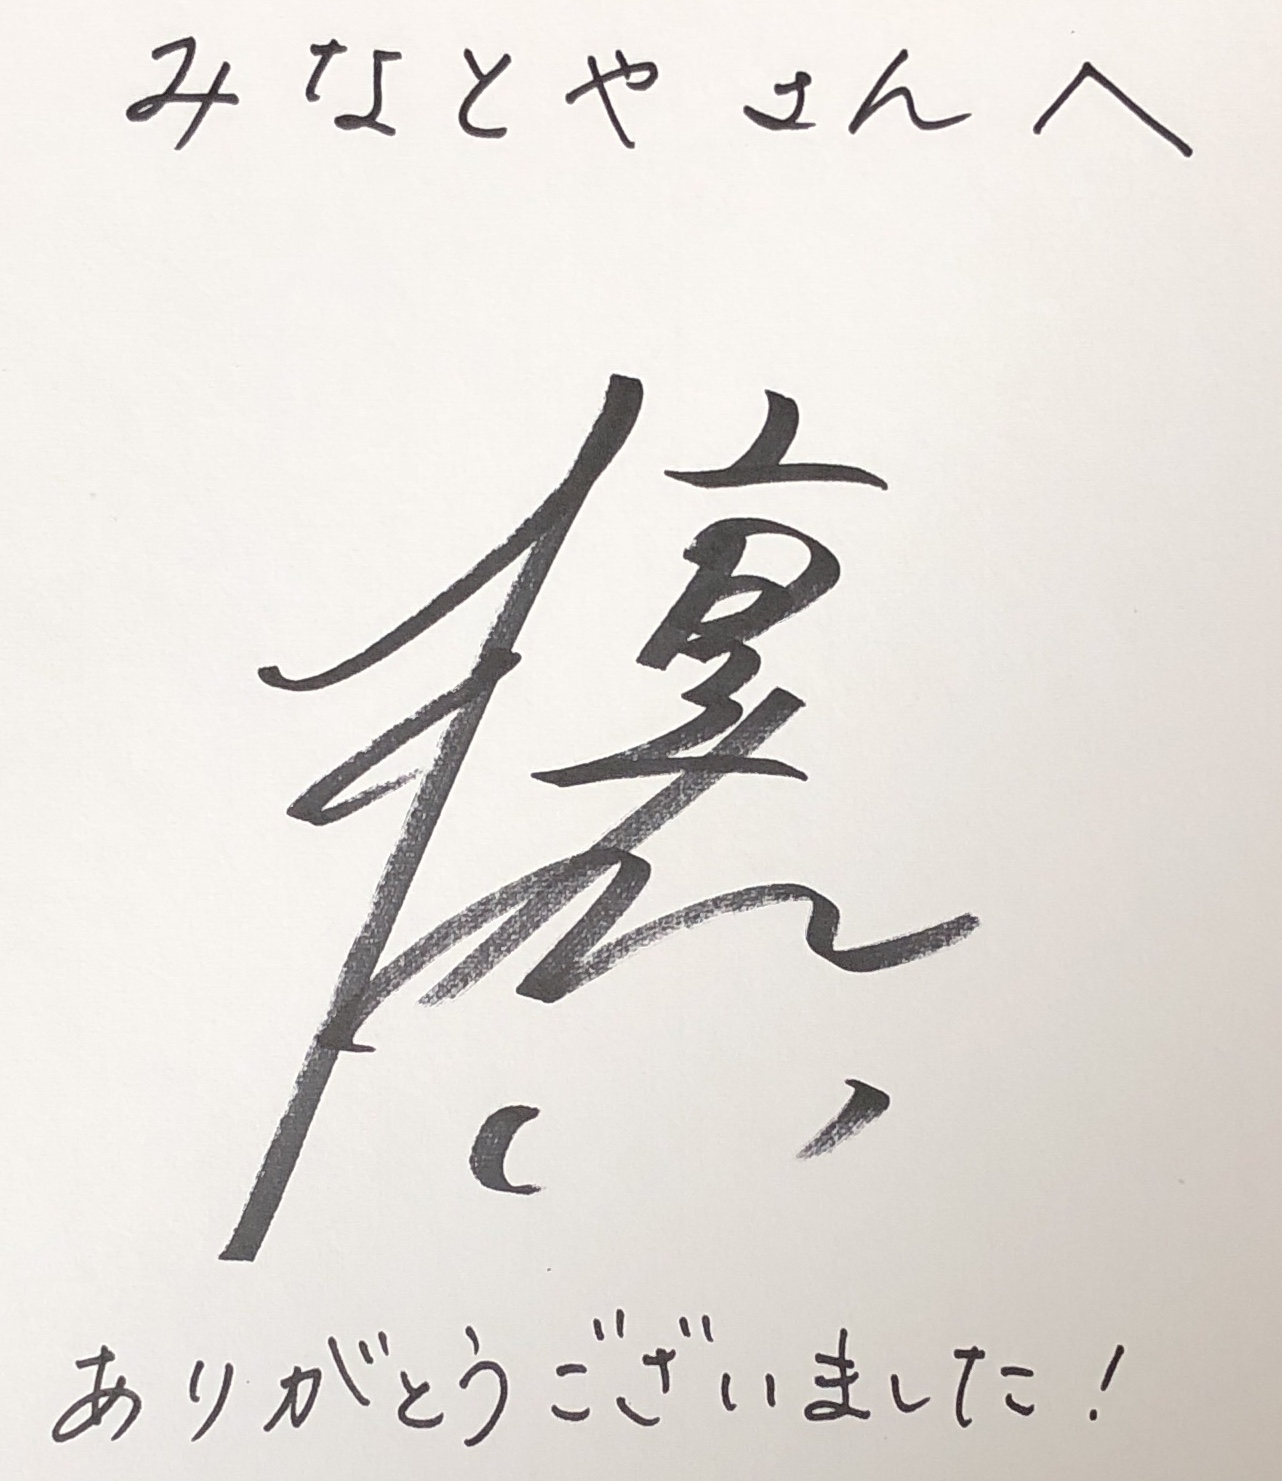 みなとやさんへ
ありがとうございました!